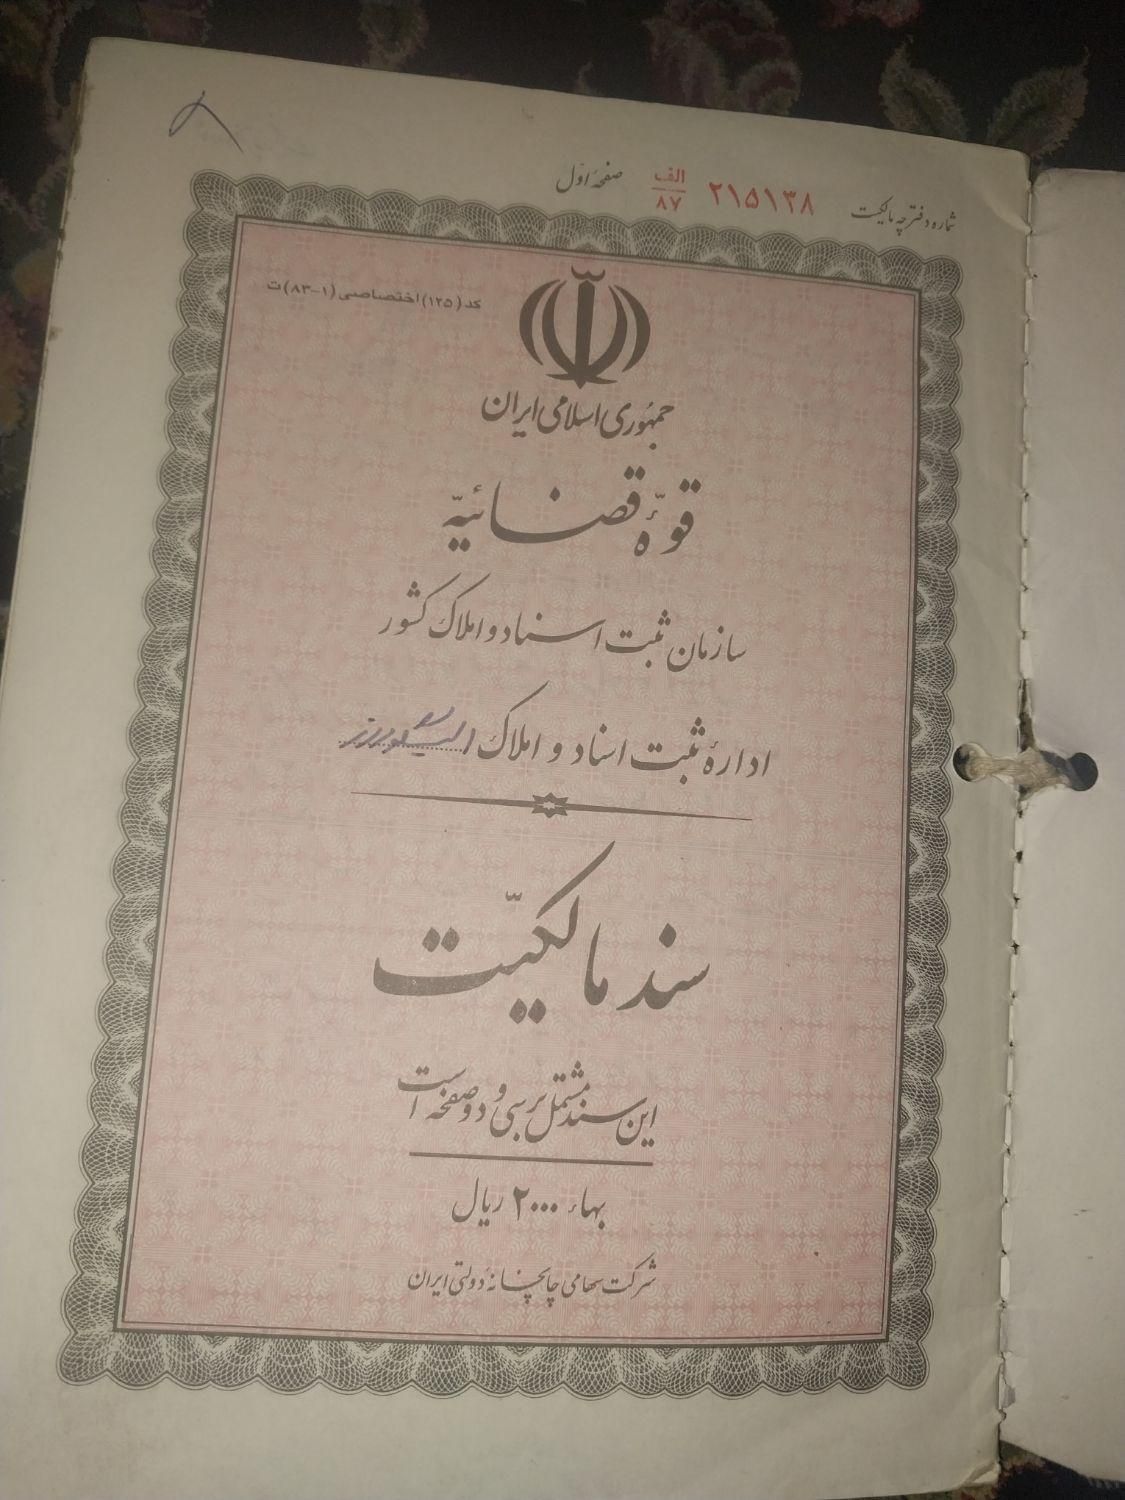 شماره دفترچه مالکیت ۲۱۵۱۳۸ الف/۸۷ صفحهٔ اوّل
کد (۱۲۵) اختصاصی (۱-۸۳) ت
جمهوری اسلامی ایران
قوّهٔ قضائیّه
سازمان ثبت اسناد و املاک کشور
ادارهٔ ثبت اسناد و املاک
سند مالکیّت
این سند مشتمل بر سی و دو صفحه است
بهاء ۲۰۰۰ ریال
شرکت سهامی چاپخانهٔ دولتی ایران